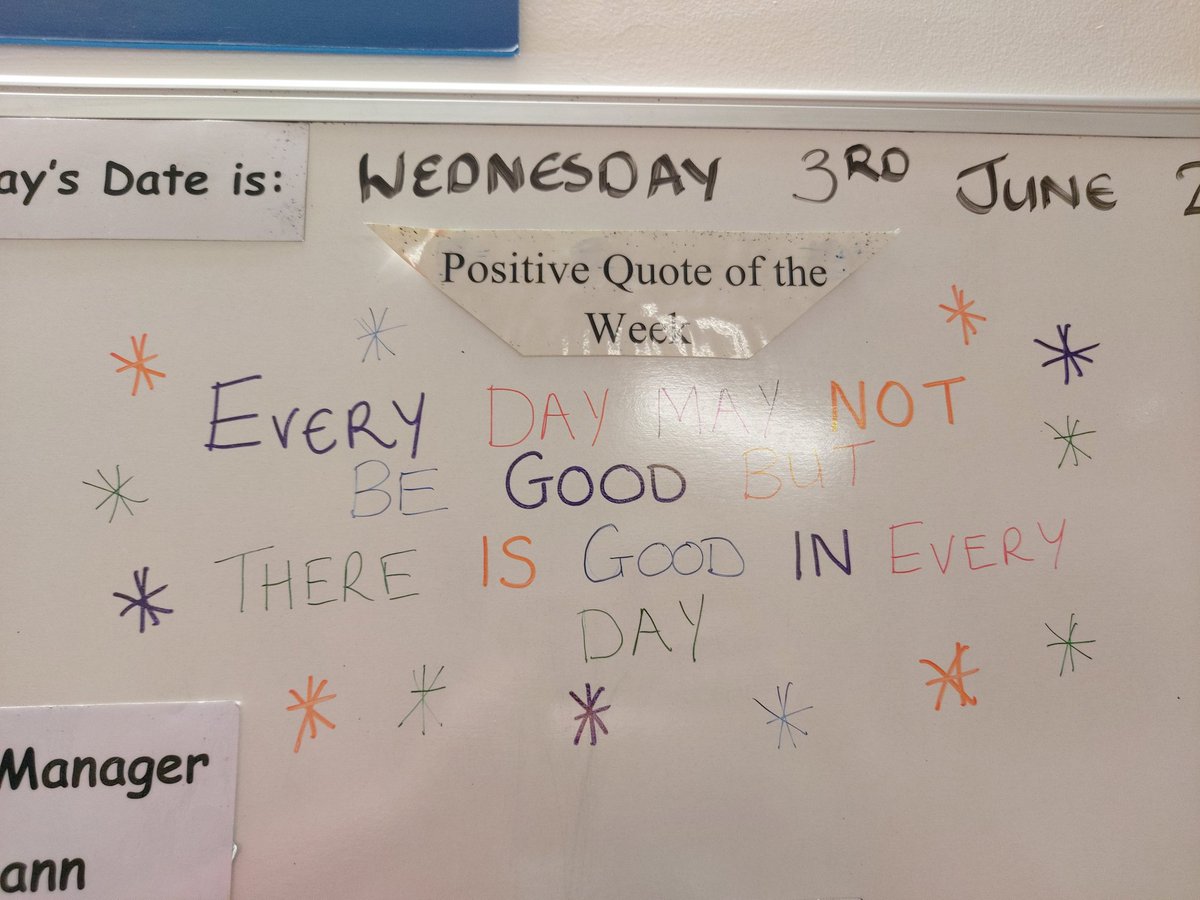 ay's Date is: WEDNESDAY 3RD JUNE 2
Positive Quote of the
Week
EVERY DAY MAY NOT
BE GOOD BUT
THERE IS GOOD IN EVERY
DAY
Manager
ann